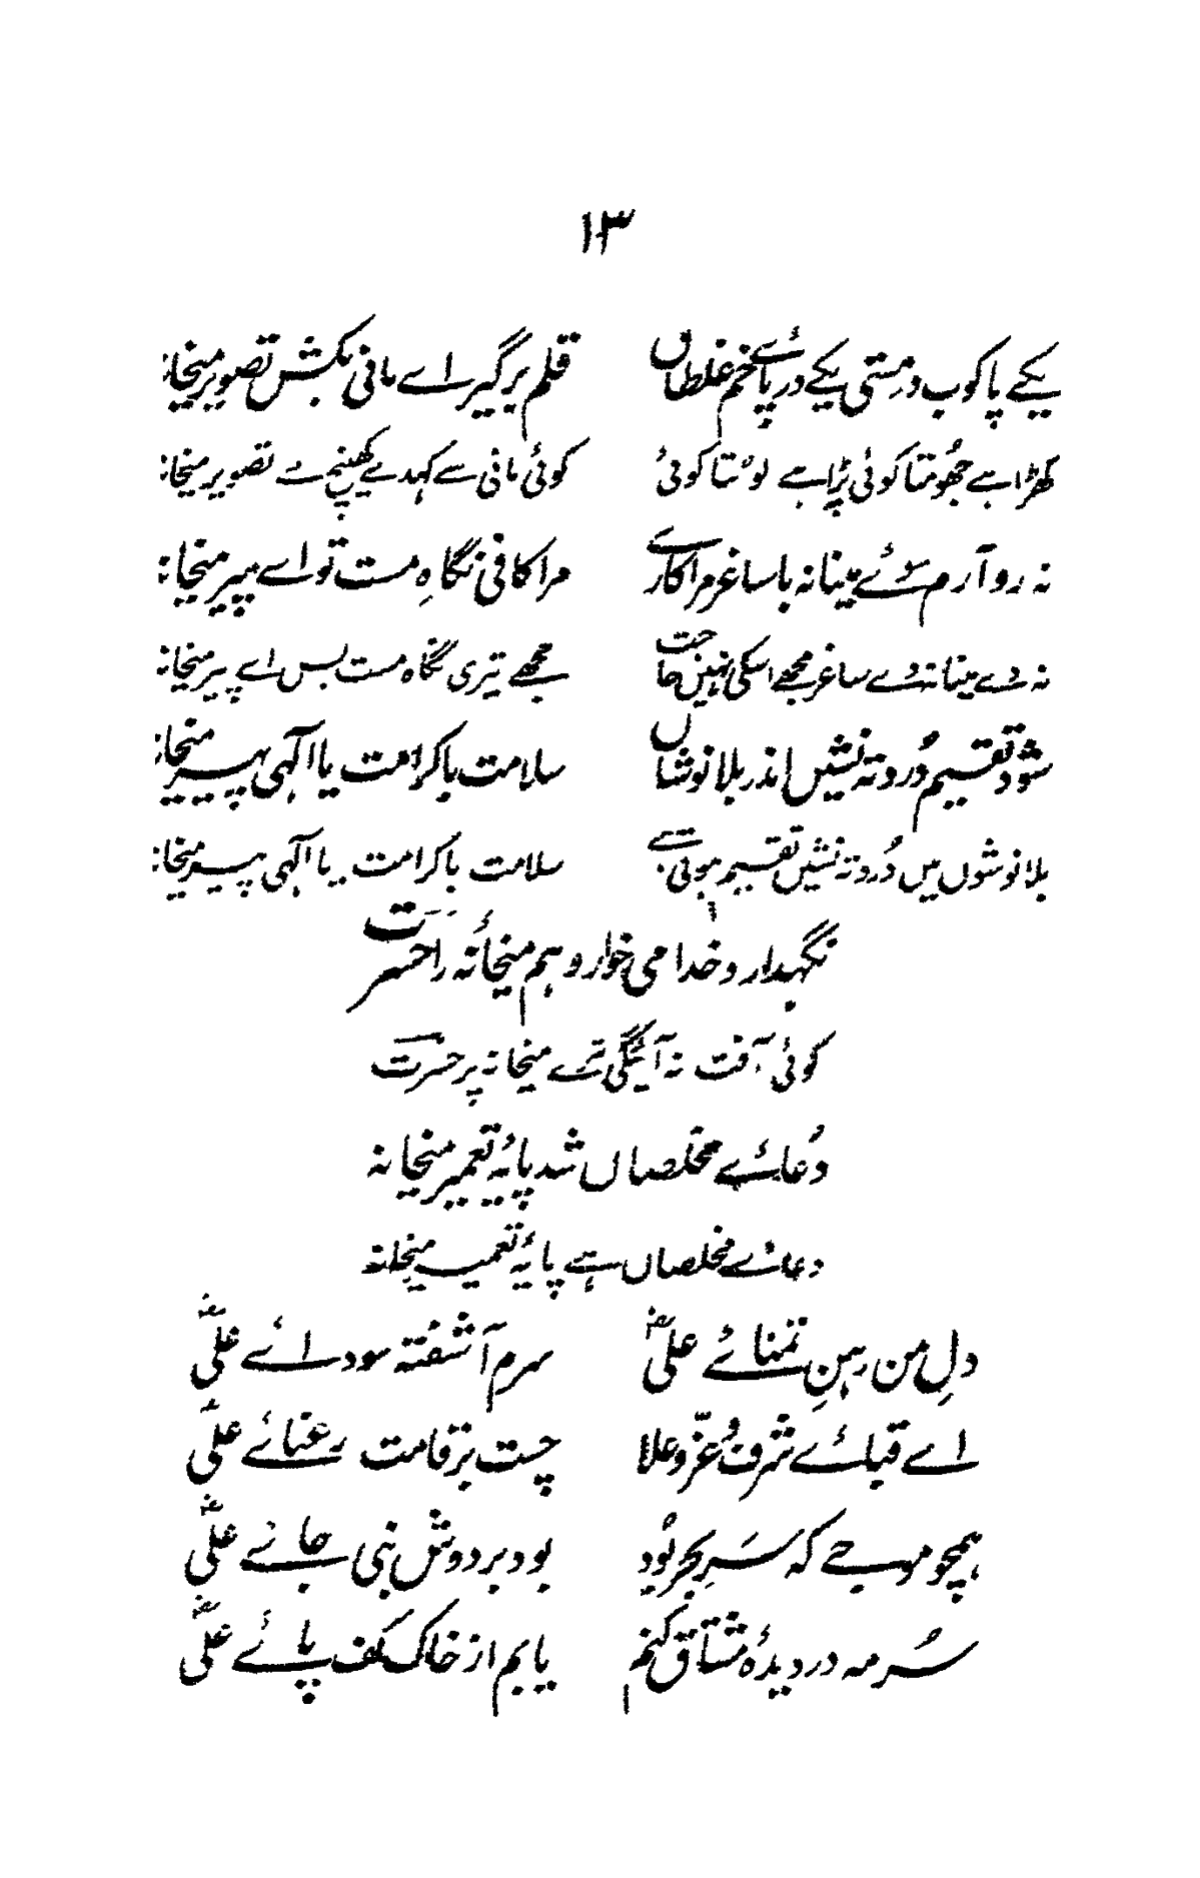 ۱۳
یکے پا کوب در مستی یکے در پائے خم غلطاں قلم برگیر اے مانی بکش تصویر میخانہ
کھڑا ہے جھُومتا کوئی پڑا ہے لوٹتا کوئی کوئی مانی سے کہدے کھینچ دے تصویر میخانہ
نہ رو آرم سوئے مینا نہ با ساغر مرا کارے مرا کافی نگاہِ مست تو اے پیر میخانہ
نہ دے مینا نہ دے ساغر مجھے اسکی نہیں حاجت مجھے تیری نگاہ مست بس اے پیر میخانہ
شود تقسیم دُرد تہ نشیں اندر بلا نوشاں سلامت با کرامت یا الٰہی پیر میخانہ
بلا نوشوں میں دُرد تہ نشیں تقسیم ہوتی ہے سلامت با کرامت یا الٰہی پیر میخانہ
نگہدارد خدا می خوار و ہم میخانۂ را حسرت
کوئی آفت نہ آئیگی ترے میخانہ پر حسرت
دُعائے مخلصاں شد پایۂ تعمیر میخانہ
دعائے مخلصاں ہے پایۂ تعمیر میخانہ
دلِ من رہنِ تمنائے علیؓ سرم آشفتہ سودائے علیؓ
اے قبائے شرف و عزّ و علا چست بر قامت رعنائے علیؓ
ہمچو موجے کہ سَرِ بحر بُود بود بر دوش نبی جائے علیؓ
سُرمہ در دیدۂ مشتاق کنم یابم از خاک کف پائے علیؓ